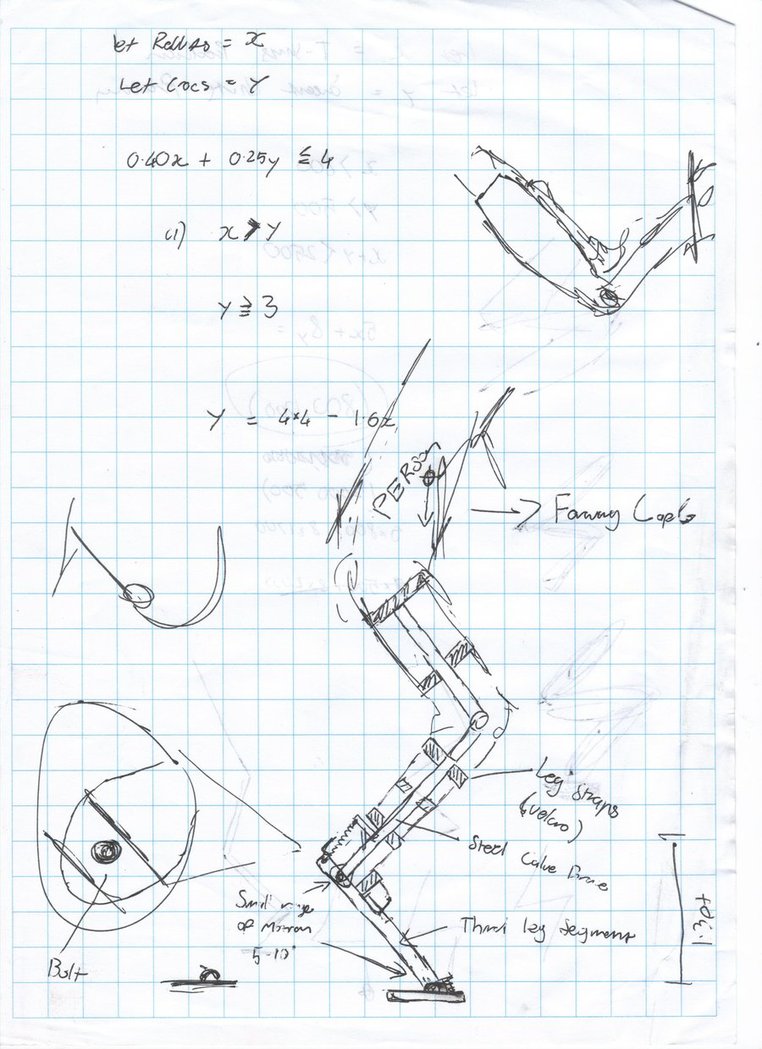 Let Rolls = x
Let Crocs = Y
0.40x + 0.25y ≤ 4
(1) x > y
y ≥ 3
Y = 4*4 - 1.6x
PERSON
Leg straps
(velcro)
Steel Calve
Small range
of Motion
5-10°
Third leg Segment
Bolt
1:3pt